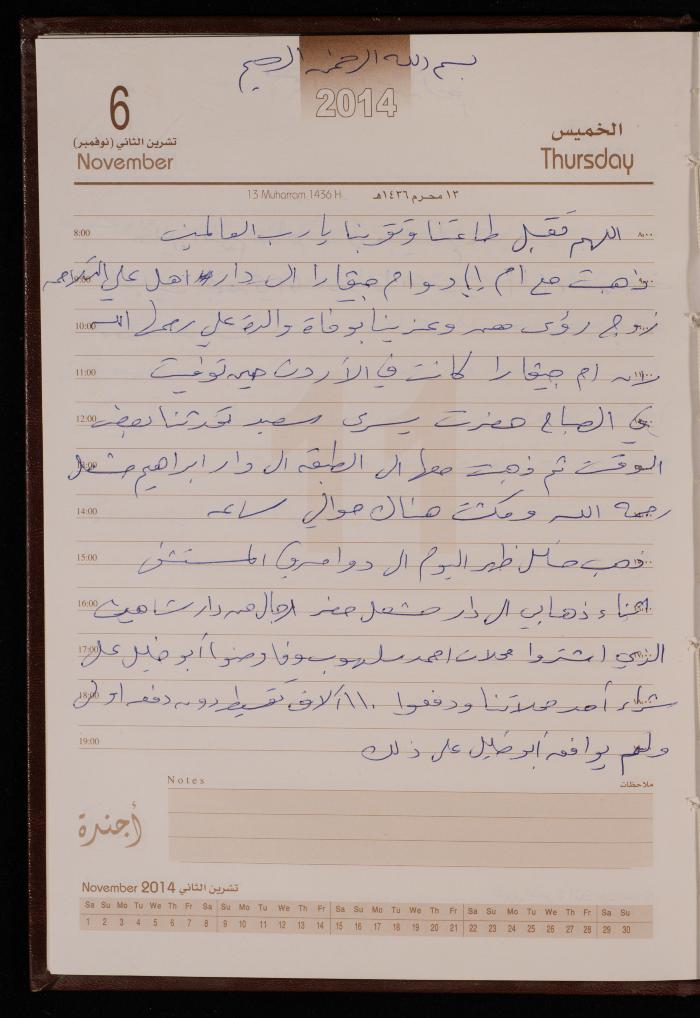 بسم الله الرحمن الرحيم
2014
6
تشرين الثاني (نوفمبر)
November
الخميس
Thursday
13 Muharram 1436 H. ١٣ محرم ١٤٣٦هـ
8:00 اللهم تقبل طاعتنا وتقربنا يا رب العالمين ٨:٠٠
ذهبت مع ام اياد وام جيفارا الى دار اهل علي
10:00 زوج رؤى وعزينا بوفاة والدة علي رحمها الله
11:00 لان ام جيفارا كانت في الأردن حين توفيت
12:00 في الصباح حضرت يسرى سعيد تحدثنا بعض
الوقت ثم ذهبت معها الى الطبقه الى دار ابراهيم مشعل
14:00 رحمه الله ومكثت هناك حوالي ساعه
15:00 ذهب خليل ظهر اليوم الى دوامه في المستشفى
16:00 اثناء ذهابي الى دار مشعل حضر رجال من دار شاهين
17:00 الذي اشتروا محلات احمد سلهوب وفاوضوا أبو خليل على
18:00 شراء أحد محلاتنا ودفعوا ١١٠ آلاف تقسيط دون دفعه اولى
19:00 ولم يوافق أبو خليل على ذلك
Notes ملاحظات
أجندة
November 2014 تشرين الثاني
Sa Su Mo Tu We Th Fr Sa Su Mo Tu We Th Fr Sa Su Mo Tu We Th Fr Sa Su Mo Tu We Th Fr Sa Su
1 2 3 4 5 6 7 8 9 10 11 12 13 14 15 16 17 18 19 20 21 22 23 24 25 26 27 28 29 30